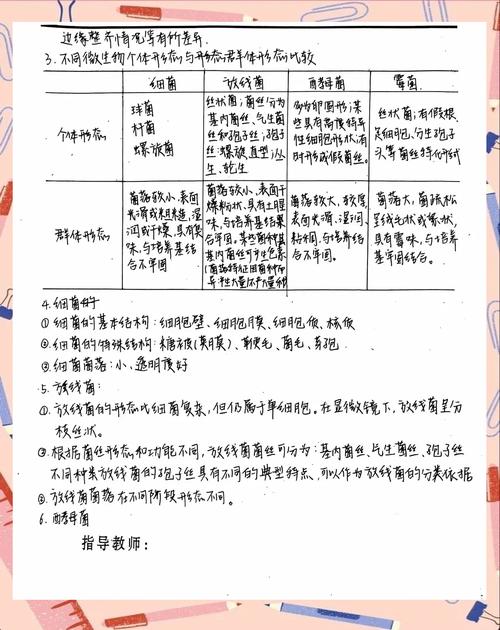 边缘整齐情况等有所差异.
3. 不同微生物个体形态与形态群体形态比较
细菌 放线菌 酵母菌 霉菌
个体形态
球菌
杆菌
螺旋菌
丝状菌;菌丝分为
基内菌丝、气生菌
丝和孢子丝;孢子
丝:螺旋、直型;丛
生、轮生
多为卵圆形;某
些具有高度特异
性细胞形状,有
时形成假菌丝。
丝状菌;有假根、
足细胞、分生孢子
头等菌丝特化形式
群体形态
菌落较小、表面
光滑或粗糙、湿
润或干燥、具有臭
味,与培养基结
合不牢固
菌落较小、表面干
燥粉状、具有土腥
味,与培养基结果
合牢固。某些菌种其
基内菌丝可产生色素
菌落较大、较厚、
表面光滑、湿润、
粘稠、与培养基
结合不牢固。
菌落大,菌疏松
呈绒毛状或絮状,
具有霉味,与培养
基牢固结合。
4. 细菌
① 细菌的基本结构:细胞壁、细胞膜、细胞质、核质
② 细菌的特殊结构:糖被(荚膜)、鞭毛、菌毛、芽孢.
③ 细菌菌落:小、透明度好
5. 放线菌:
①. 放线菌的形态比细菌复杂,但仍属于单细胞。在显微镜下,放线菌呈分
枝丝状。
②. 根据菌丝形态和功能不同,放线菌菌丝可分为:基内菌丝、气生菌丝、孢子丝
不同种类放线菌的孢子丝具有不同的典型特点,可以作为放线菌的分类依据
③. 放线菌菌落在不同阶段形态不同。
6. 酵母菌
指导教师: